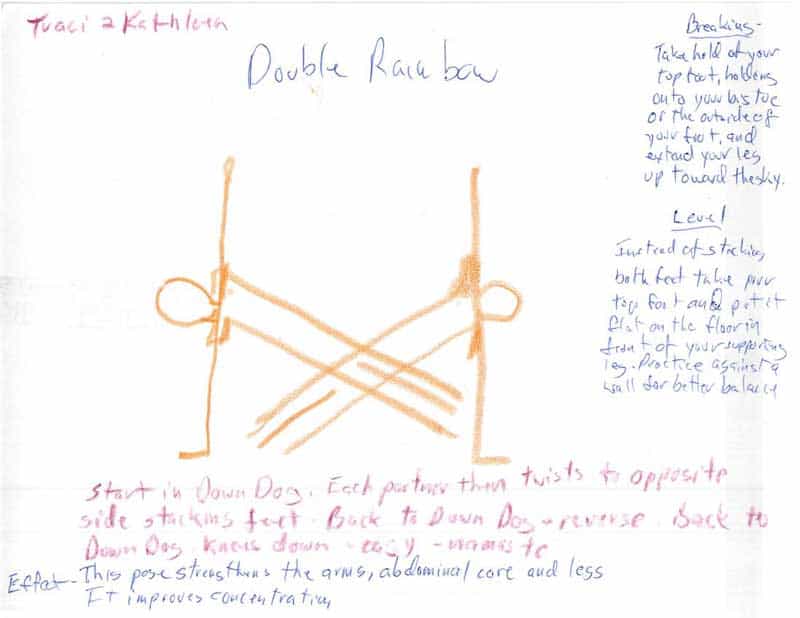 Traci & Kathleen
Double Rainbow
Breaking-
Take hold of your
top foot, holding
onto your big toe
or the outside of
your foot, and
extend your leg
up toward the sky.
Level
Instead of stacking
both feet take your
top foot and put it
flat on the floor in
front of your supporting
leg. Practice against a
wall for better balance
Start in Down Dog. Each partner then twists to opposite
side stacking feet. Back to Down Dog - reverse. Back to
Down Dog. Knees down - easy - namaste
Effect - This pose strengthens the arms, abdominal core and legs
It improves concentration